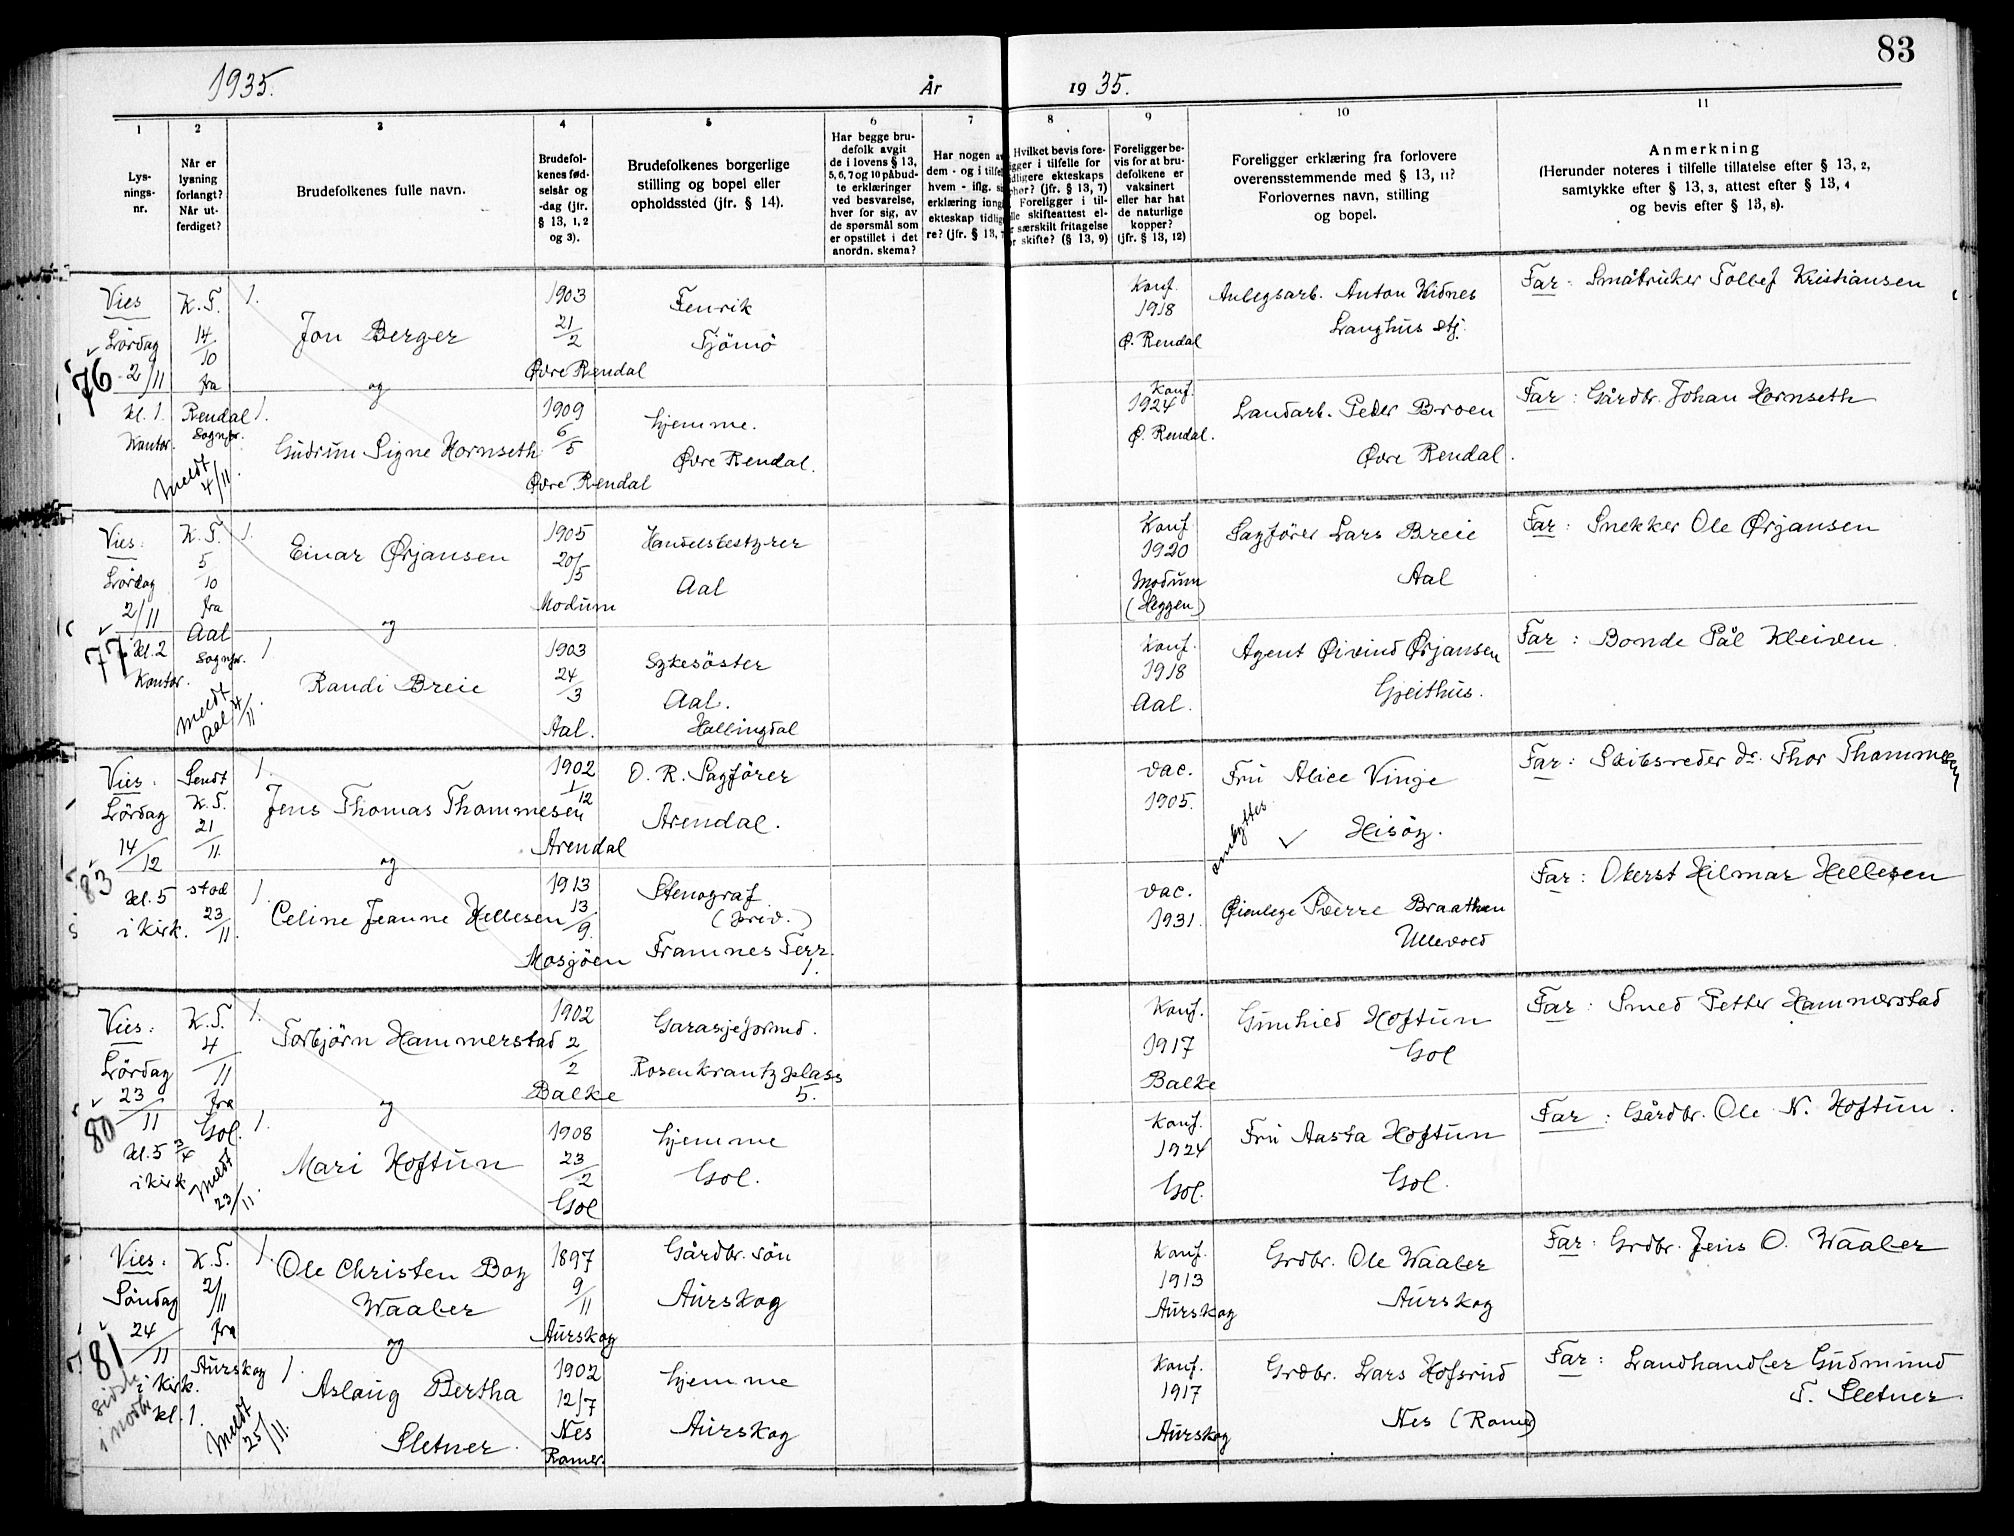 83
1935.
År
19 35.
1
2
3
4
5
6
7
8
9
10
11
Lys-
nings-
nr.
Når er
lysning
forlangt?
Når ut-
ferdiget?
Brudefolkenes fulle navn.
Brudefol-
kenes fød-
selsår og
-dag (jfr.
§ 13, 1, 2
og 3).
Brudefolkenes borgerlige
stilling og bopel eller
opholdssted (jfr. § 14).
Har begge bru-
defolk avgit
de i lovens § 13,
5, 6, 7 og 10 påbud-
te erklæringer
ved besvarelse,
hver for sig, av
de spørsmål som
er opstillet i det
anordn. skema?
Har nogen av
dem - og i tilfel
hvem - iflg. s
erklæring inng
ekteskap tidlig
re? (jfr. § 13, 7
Hvilket bevis fore-
igger i tilfelle for
idligere ekteskaps
phør? (jfr. § 13, 7)
Foreligger i til-
lle skifteattest el-
r særskilt fritagelse
or skifte? (§ 13, 9)
Foreligger be-
vis for at bru-
defolkene er
vaksinert
eller har hat
de naturlige
kopper?
(jfr. § 13, 12)
Foreligger erklæring fra forlovere
overensstemmende med § 13, 11?
Forlovernes navn, stilling
og bopel.
Anmerkning
(Herunder noteres i tilfelle tillatelse efter § 13, 2,
samtykke efter § 13, 3, attest efter § 13, 4
og bevis efter § 13, 8).
76
Vies
Lördag
2/11
kl. 1.
Kontor.
K. T.
14
10
fra
Rendal
Sognpr.
Meldt
4/11.
1.
Jon Berger
og
1.
Gudrun Signe Hornseth
1903
21
2
Øvre Rendal
1909
6
5
Øvre Rendal
Fenrik
Tjömö
hjemme.
Øvre Rendal.
Konf.
1918
Ø. Rendal
Konf.
1924
Ø. Rendal.
Anlegsarb. Anton Hidnes
Langhus stj.
Landarb. Peder Broen
Øvre Rendal.
Far: Småbruker Tollef Kristiansen
Far: Gårdbr. Johan Hornseth
77
Vies:
Lördag
2/11
kl. 2
Kontor.
K. T.
5
10
fra
Aal
Sognpr.
Meldt
Aal 4/11
1.
Einar Ørjansen
og
1
Randi Breie
1905
20/5
Modum
1903
24
3
Aal.
Handelsbestyrer
Aal
Sykesöster
Aal.
Hallingdal
Konf
1920
Modum
(Heggen)
Konf.
1918
Aal.
Sagförer Lars Breie
Aal
Agent Øivind Ørjansen
Gjeithus.
Far: Snekker Ole Ørjansen
Far: Bonde Pål Kleiven.
83
Vies:
Lördag
14
12
kl. 5
i kirk.
Sendt
K. T.
21
11.
stod
23
11.
1.
Jens Thomas Thommesen
og
1.
Celine Jeanne Hellesen
1902
1
12
Arendal
1913
13
9.
Mosjöen
O. R. Sagförer
Arendal.
Stenograf
(priv.)
Framnes Terr.
1.
vac.
1905.
vac.
1931.
Fru Alice Vinje
Hisöy.
ombyttes
Øienlege Sverre Braathen
Ullevold
Far: Skibsreder dr. Thor Thommesen
Far: Oberst Hilmar Hellesen
80
Vies:
Lördag
23
11
kl. 5 3/4
i kirk
K. T.
4
11
fra
Gol.
Meldt
23/11.
1.
Torbjørn Hammerstad
og
1.
Mari Hoftun
1902
2
2
Balke
1908
23
2
Gol
Garasjeformd.
Rosenkrantz plass
5.
hjemme
Gol.
Konf.
1917
Balke
Konf.
1924
Gol.
Gunhild Hoftun
Gol
Fru Aasta Hoftun
Gol.
Far: Smed Petter Hammerstad
Far: Gårdbr. Ole N. Hoftun.
81
Vies:
Söndag
24
11
i kirk.
kl. 1.
K. T.
2/11
fra
Aurskog
Meldt
25/11.
1.
Ole Christen Boy
Waaler
og
1.
Aslaug Bertha
Sletner.
1897
9
11
Aurskog
1902
12/7
Nes
Romer.
Gårdbr. sön
Aurskog
hjemme
Aurskog
Konf.
1913
Aurskog
Konf.
1917
Aurskog
Grdbr. Ole Waaler
Aurskog
Grdbr. Lars Hofsrud
Nes (Romer)
Far: Grdbr. Jens O. Waaler
Far: Landhandler Gudmund
T. Sletner.